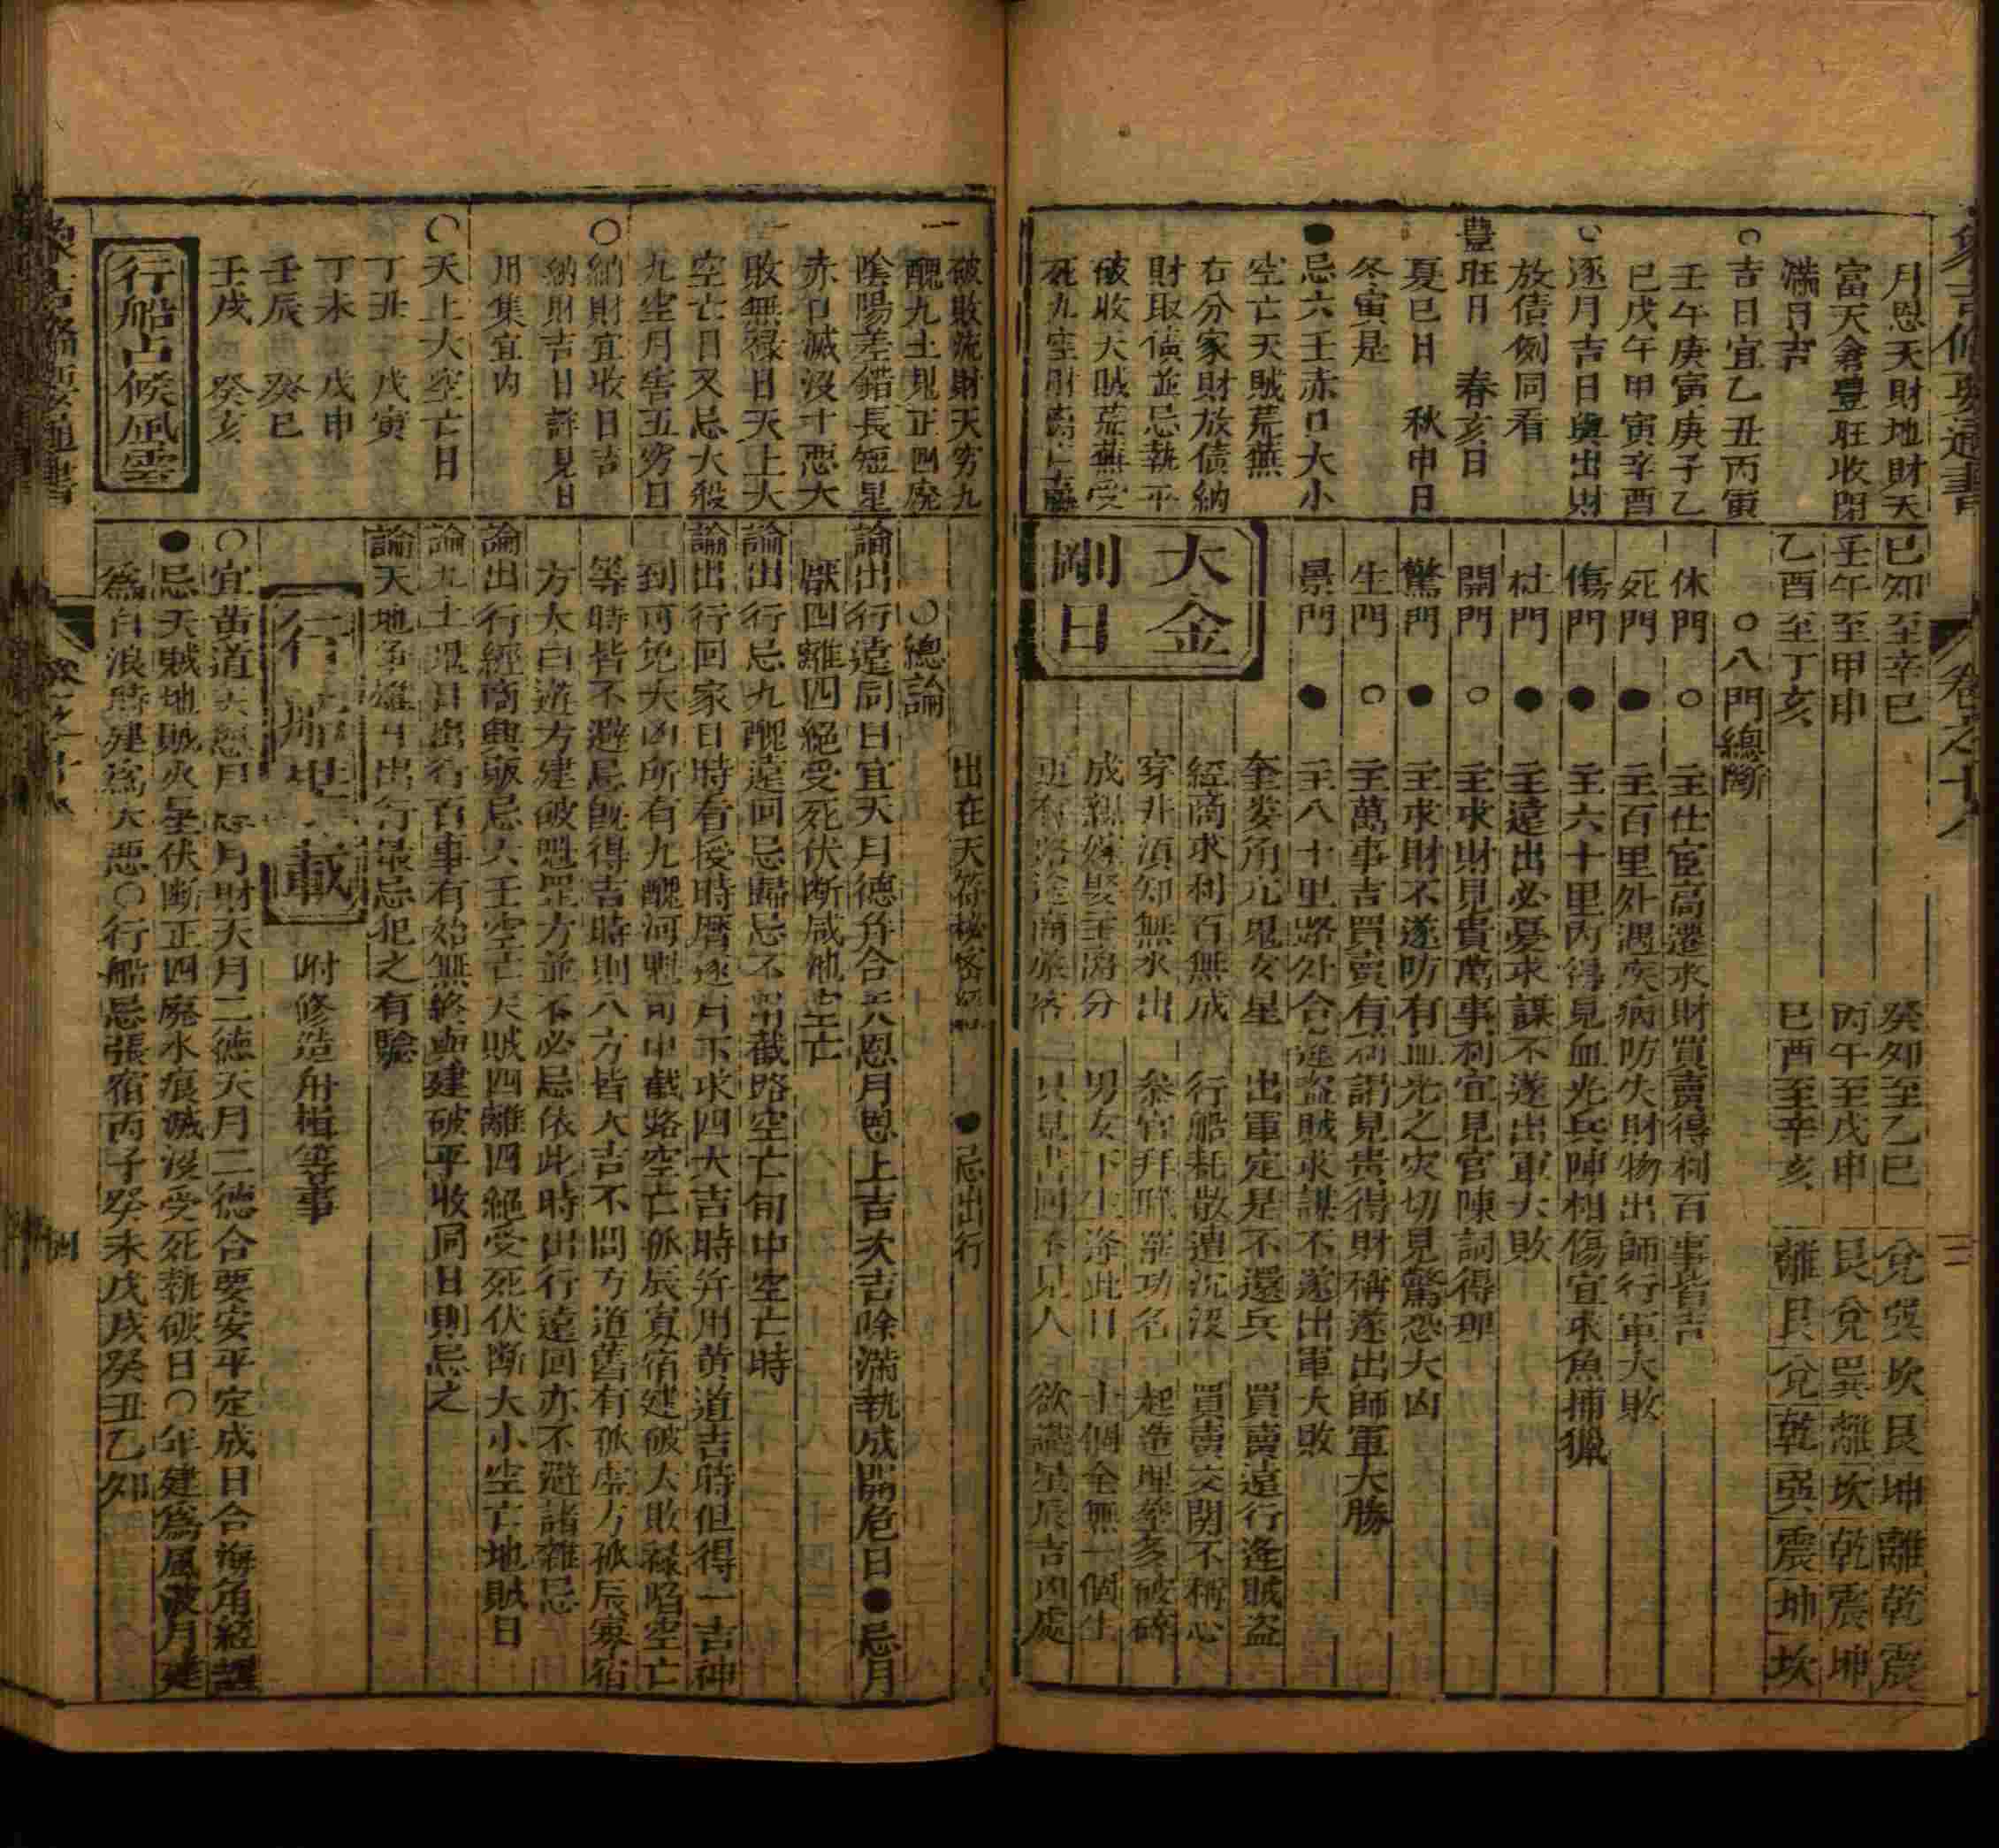 象吉備要通書
卷之十八
月恩天財地財天
富天倉豐旺收閉
滿日吉
○吉日宜乙丑丙寅
壬午庚寅庚子乙
巳戊午甲寅辛酉
○逐月吉日與出財
放債例同看
豐旺日 春亥日
夏巳日 秋申日
冬寅是
●忌六壬赤口大小
空亡天賊荒蕪
右分家財放債納
財取債並忌執平
破收天賊荒蕪受
死九空財離
己卯至辛巳 癸卯至乙巳 兌巽坎艮坤離乾震
壬午至甲申 丙午至戊申 艮兌巽離坎乾震坤
乙酉至丁亥 巳酉至辛亥 離艮兌乾巽震坤坎
○八門總斷
休門 ○ 主仕宦高遷求財買賣得利百事皆吉
死門 ● 主百里外遇疾病防失財物出師行軍大敗
傷門 ● 主六十里內得見血光兵陣相傷宜求魚捕獵
杜門 ● 主遠出必憂求謀不遂出軍大敗
開門 ○ 主求財見貴萬事利宜見官陳詞得理
驚門 ● 主求財不遂防有血光之災切見驚恐大凶
生門 ○ 主萬事吉買賣有利謁見貴得財稱遂出師軍大勝
景門 ● 主八十里路外合逢盜賊求謀不遂出軍大敗
大金剛日
奎婁角亢鬼女星 出軍定是不還兵 買賣遠行逢賊盜
經商求利百無成 行船耗散遭沉沒 買賣交関不稱心
穿井須知無水出 叅官拜職罷功名 起造埋塟多破碎
成親嫁娶主瀉分 男女下生逢此日 十個全無一個生
更有路途商旅客 只見書回不見人 欲識星辰吉凶處
出在天符秘密經 ●忌出行
破敗流財天窮九
醜九土鬼正四廢
陰陽差錯長短星
赤口滅沒十惡大
敗無祿日天上大
空亡日又忌大殺
九空月害五窮日
○納財宜收日吉
納財吉日詳見日
用集宜內
○天上大空亡日
丁丑 戊寅
丁未 戊申
壬辰 癸巳
壬戌 癸亥
行船占候風雲
○總論
論出行遠同日宜天月德并合天恩月恩上吉次吉除滿執成開危日●忌月
厭四離四絕受死伏斷咸池空亡
論出行忌九醜遠回忌歸忌不用截路空亡旬中空亡時
論出行回家日時看授時曆逐月下求四大吉時并用黃道吉時但得一吉神
到可免大凶所有九醜河魁旬中截路空亡孤辰寡宿建破大敗祿陷空亡
等時皆不避忌既得吉時則八方皆大吉不問方道舊有孤虛方孤辰寡宿
方太白遊方建破魁罡方並不必忌依此時出行遠回亦不避諸雜忌
論出行經商興販忌六壬空亡天賊四離四絕受死伏斷大小空亡地賊日
論九土鬼日出行百事有始無終與建破平收同日則忌之
論天地爭雄日出行最忌犯之有驗
行船 載 附修造舟楫等事
○宜黃道天恩月恩月財天月二德天月二德合要安平定成日合海角經
●忌天賊地賊火星伏斷正四廢水痕滅沒受死執破日○年建爲風波月建
爲白浪時建爲大惡○行船忌張宿丙子癸未戊戌癸丑乙卯